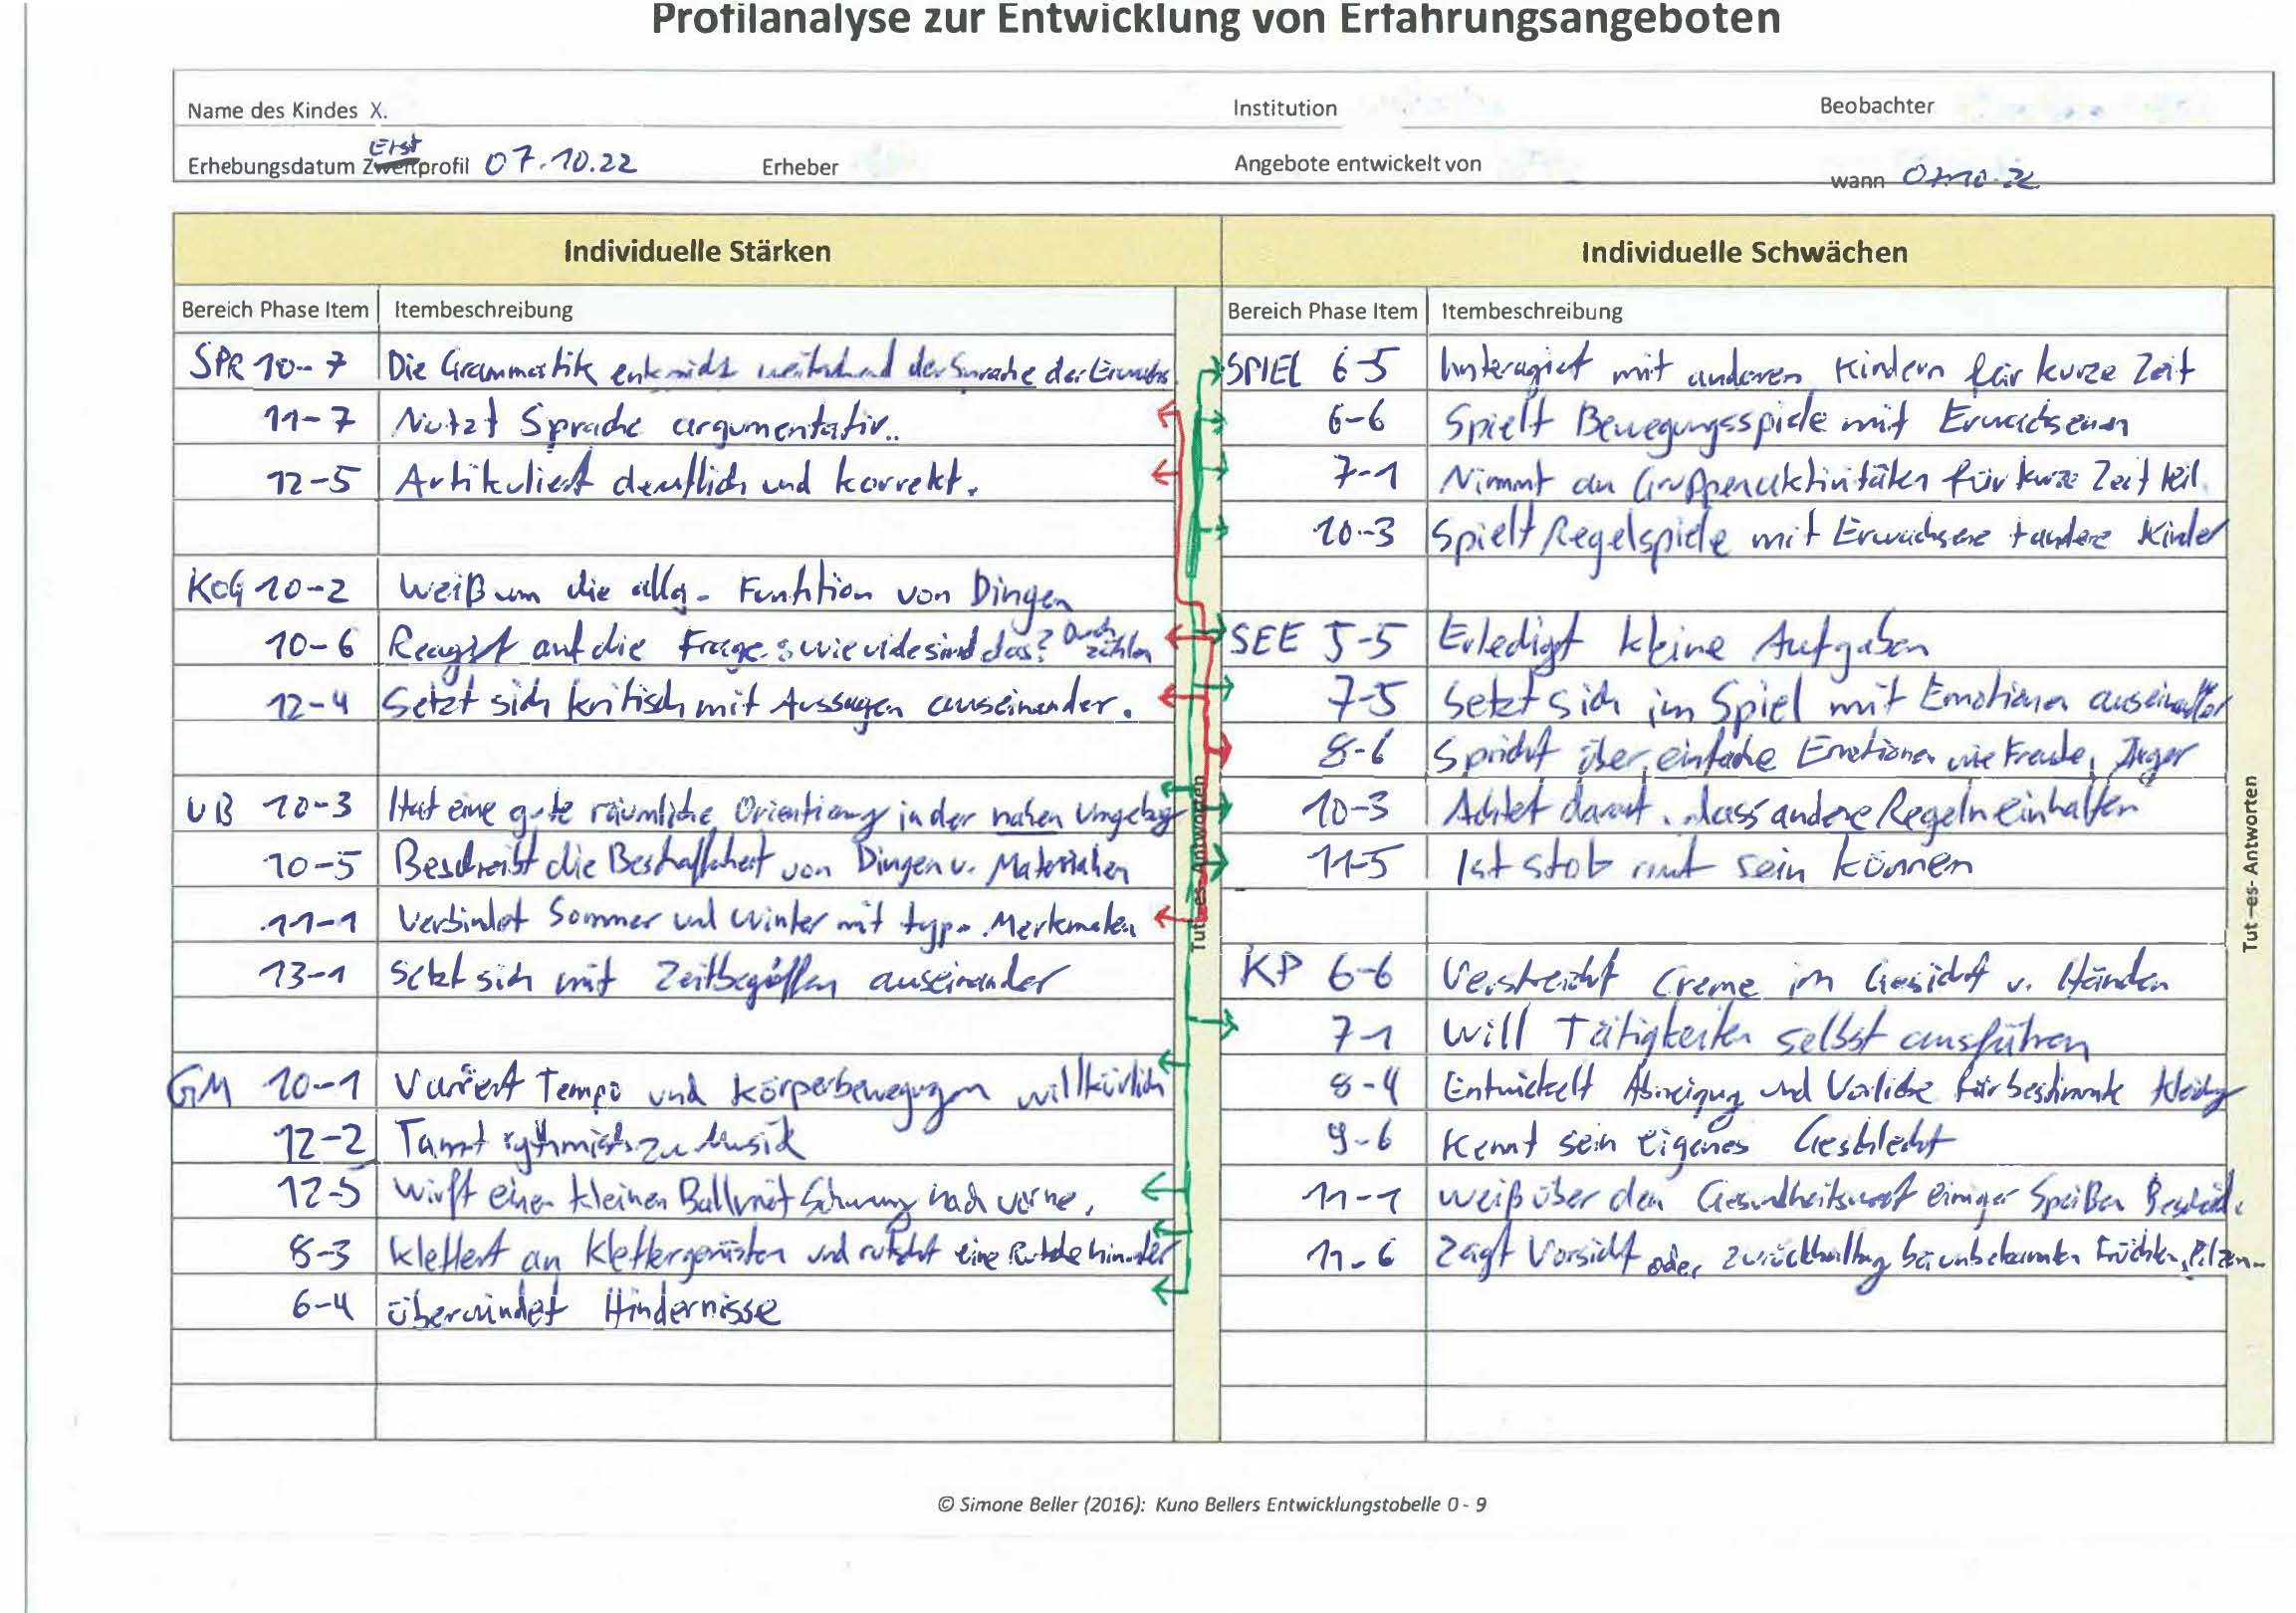 Profilanalyse zur Entwicklung von Erfahrungsangeboten
Name des Kindes X. Institution Beobachter
Erst
Erhebungsdatum Zweitprofil 07.10.22 Erheber Angebote entwickelt von wann
Individuelle Stärken Individuelle Schwächen
Bereich Phase Item Itembeschreibung Bereich Phase Item Itembeschreibung
SPR 10-7 Die Grammatik der Sprache der SPIEL 6-5 Interagiert mit anderen Kindern für kurze Zeit
11-7 Nutzt Sprache argumentativ.. 6-6 Spielt Bewegungsspiele mit Erwachsenen
12-5 Artikuliert deutlich und korrekt. 7-1 Nimmt an Gruppenaktivitäten für kurze Zeit teil.
10-3 Spielt Regelspiele mit Erwachsene + andere Kinder
KOG 10-2 Weiß um die allg. Funktion von Dingen
10-6 Reagiert auf die Frage: wie viele sind das? Durch zählen SEE 5-5 Erledigt kleine Aufgaben
12-4 Setzt sich kritisch mit Aussagen auseinander. 7-5 Setzt sich im Spiel mit Emotionen auseinander
8-6 Spricht über einfache Emotionen wie Freude, Ärger
UB 10-3 Hat eine gute räumliche Orientierung in der nahen Umgebung 10-3 Achtet darauf, dass andere Regeln einhalten
10-5 Beschreibt die Beschaffenheit von Dingen u. Materialien 11-5 Ist stolz auf sein können
11-1 Verbindet Sommer und Winter mit typ. Merkmalen
13-1 Setzt sich mit Zeitbegriffen auseinander KP 6-6 Verstreicht Creme im Gesicht u. Händen
7-1 Will Tätigkeiten selbst ausführen
GM 10-1 Variiert Tempo und Körperbewegungen willkürlich 8-4 Entwickelt Abneigung und Vorliebe für bestimmte Kleidung
12-2 Tanzt rythmisch zu Musik 9-6 Kennt sein eigenes Geschlecht
12-5 Wirft einen kleinen Ball mit Schwung nach vorne. 11-1 Weiß über den Gesundheitswert einiger Speißen Bescheid.
8-3 Klettert an Klettergerüsten und rutscht eine Rutsche hinunter 11-6 Zeigt Vorsicht oder Zurückhaltung bei unbekannten Früchten, Pilzen
6-4 überwindet Hindernisse
Tut –es- Antworten
Tut –es- Antworten
© Simone Beller (2016): Kuno Bellers Entwicklungstabelle 0 - 9